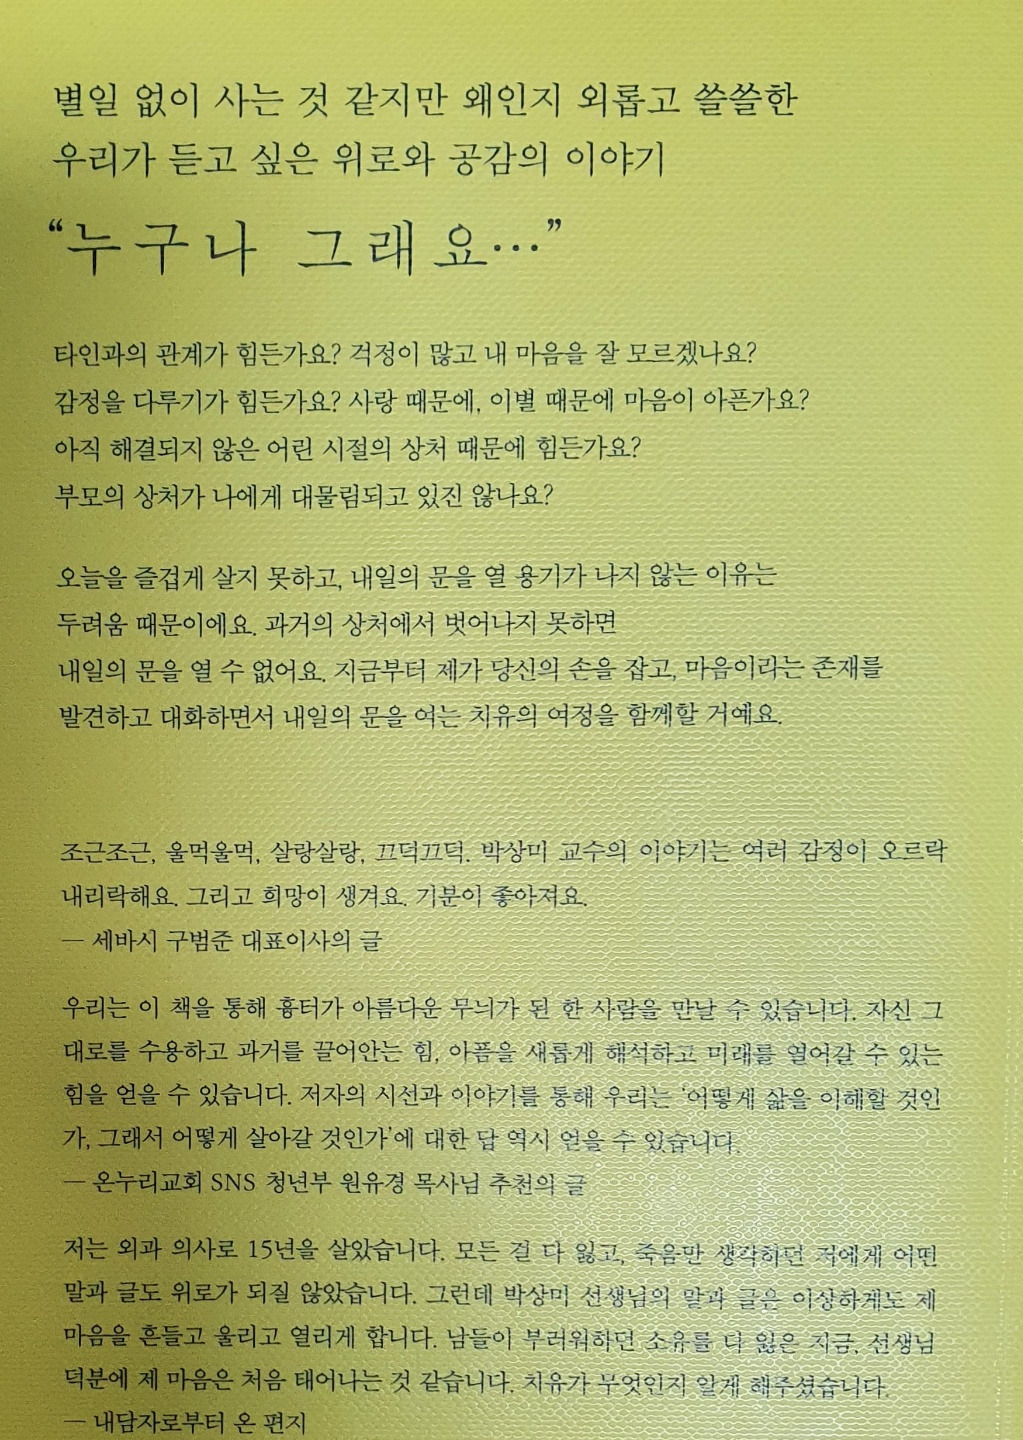 별일 없이 사는 것 같지만 왜인지 외롭고 쓸쓸한
우리가 듣고 싶은 위로와 공감의 이야기
“누구나 그래요…”
타인과의 관계가 힘든가요? 걱정이 많고 내 마음을 잘 모르겠나요?
감정을 다루기가 힘든가요? 사랑 때문에, 이별 때문에 마음이 아픈가요?
아직 해결되지 않은 어린 시절의 상처 때문에 힘든가요?
부모의 상처가 나에게 대물림되고 있진 않나요?
오늘을 즐겁게 살지 못하고, 내일의 문을 열 용기가 나지 않는 이유는
두려움 때문이에요. 과거의 상처에서 벗어나지 못하면
내일의 문을 열 수 없어요. 지금부터 제가 당신의 손을 잡고, 마음이라는 존재를
발견하고 대화하면서 내일의 문을 여는 치유의 여정을 함께할 거예요.
조근조근, 울먹울먹, 살랑살랑, 끄덕끄덕. 박상미 교수의 이야기는 여러 감정이 오르락
내리락해요. 그리고 희망이 생겨요. 기분이 좋아져요.
— 세바시 구범준 대표이사의 글
우리는 이 책을 통해 흉터가 아름다운 무늬가 된 한 사람을 만날 수 있습니다. 자신 그
대로를 수용하고 과거를 끌어안는 힘, 아픔을 새롭게 해석하고 미래를 열어갈 수 있는
힘을 얻을 수 있습니다. 저자의 시선과 이야기를 통해 우리는 ‘어떻게 삶을 이해할 것인
가, 그래서 어떻게 살아갈 것인가’에 대한 답 역시 얻을 수 있습니다.
— 온누리교회 SNS 청년부 원유경 목사님 추천의 글
저는 외과 의사로 15년을 살았습니다. 모든 걸 다 잃고, 죽음만 생각하던 저에게 어떤
말과 글도 위로가 되질 않았습니다. 그런데 박상미 선생님의 말과 글은 이상하게도 제
마음을 흔들고 울리고 열리게 합니다. 남들이 부러워하던 소유를 다 잃은 지금, 선생님
덕분에 제 마음은 처음 태어나는 것 같습니다. 치유가 무엇인지 알게 해주셨습니다.
— 내담자로부터 온 편지